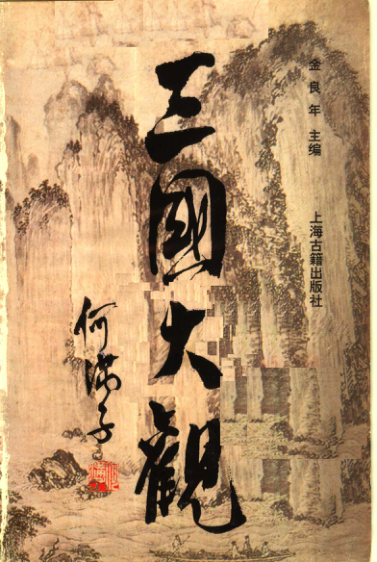 金良年 主编
上海古籍出版社
三國大觀
何满子